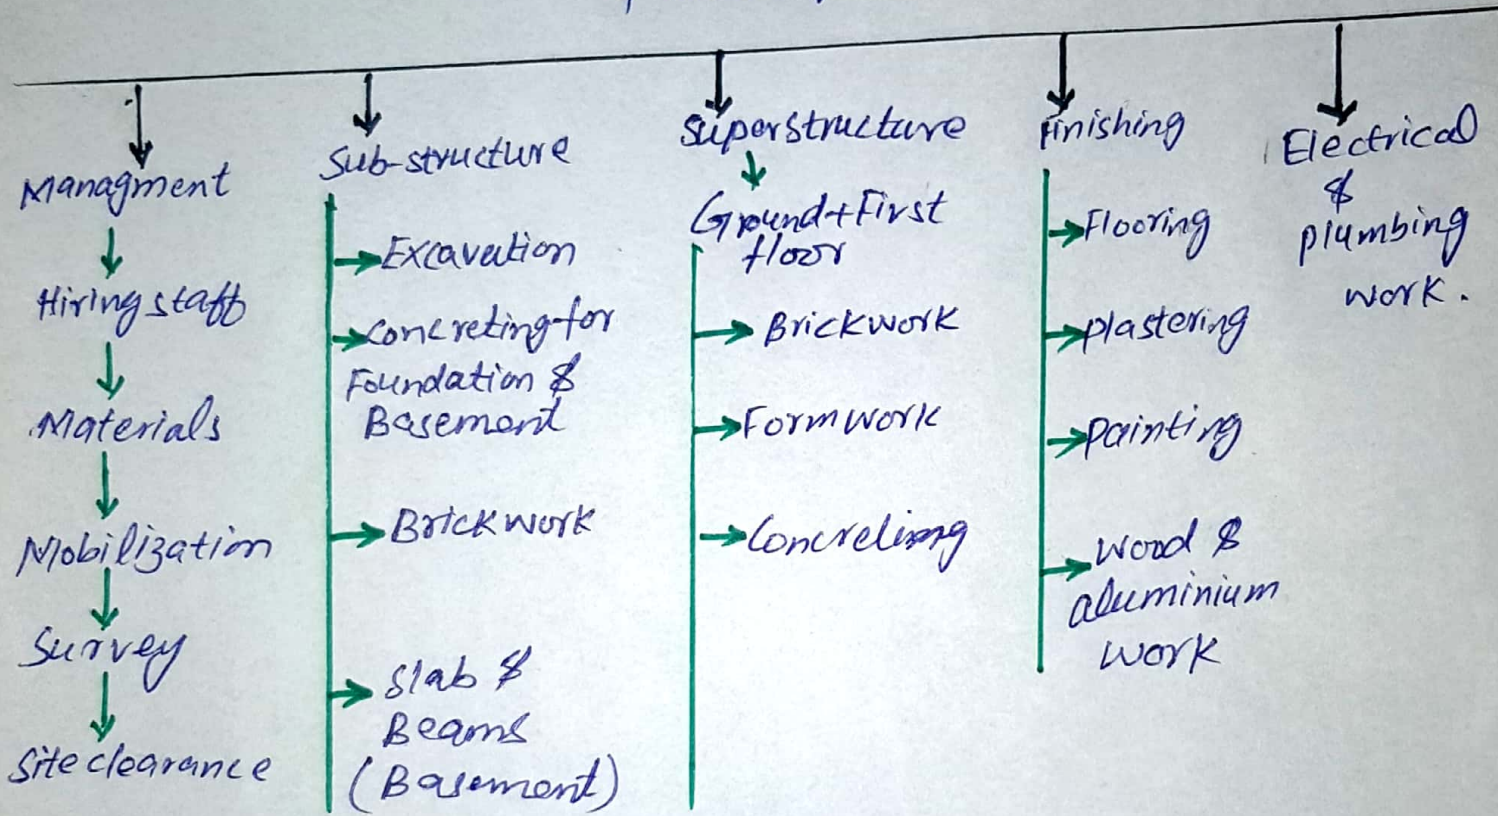 Managment
Hiring staff
Materials
Mobilization
Survey
Site clearance
Sub-structure
Excavation
Concreting for
Foundation &
Basement
Brickwork
Slab &
Beams
(Basement)
Superstructure
Ground + First
floor
Brickwork
Formwork
Finishing
Flooring
plastering
painting
wood &
aluminium
work
Electrical
&
plumbing
work.